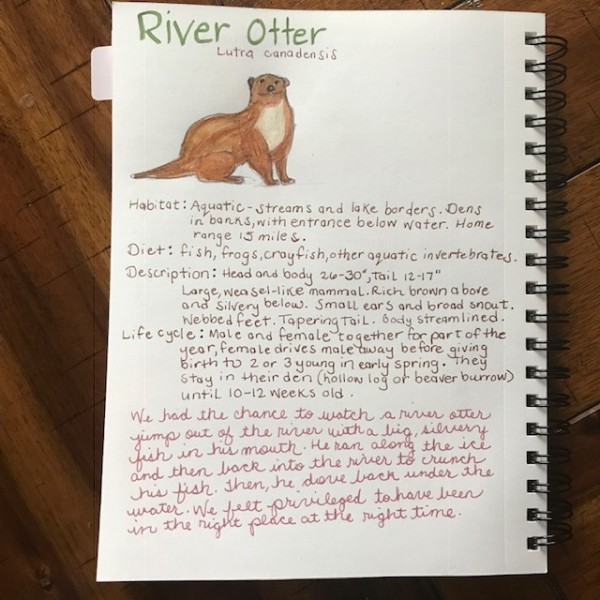 River Otter
Lutra canadensis
Habitat: Aquatic - streams and lake borders. Dens
in banks, with entrance below water. Home
range 15 miles.
Diet: fish, frogs, crayfish, other aquatic invertebrates.
Description: Head and body 26-30", Tail 12-17"
Large, weasel-like mammal. Rich brown above
and silvery below. Small ears and broad snout.
Webbed feet. Tapering tail. Body streamlined.
Life cycle: Male and female together for part of the
year, female drives male away before giving
birth to 2 or 3 young in early spring. They
stay in their den (hollow log or beaver burrow)
until 10-12 weeks old.
We had the chance to watch a river otter
jump out of the river with a big, silvery
fish in his mouth. He ran along the ice
and then back into the river to crunch
his fish. Then, he dove back under the
water. We felt privileged to have been
in the right place at the right time.